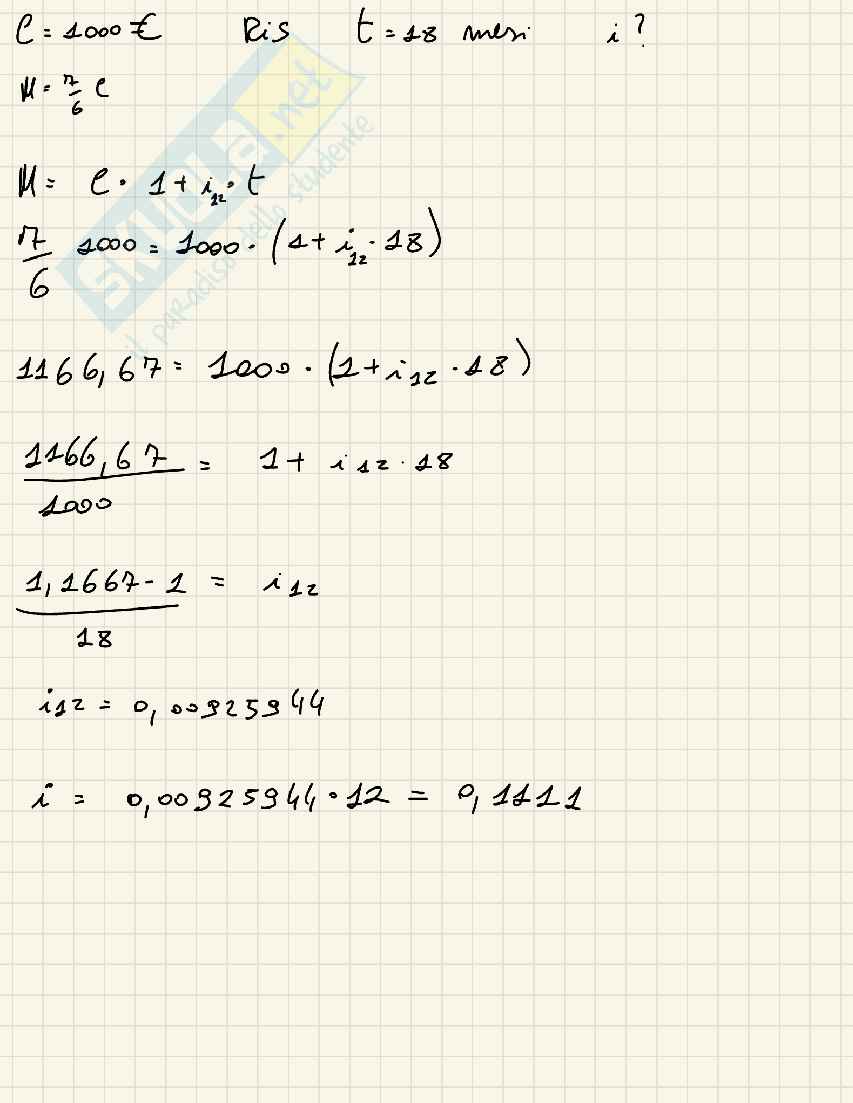 C = 1000 € Ris t = 18 mesi i ?
M = 7/6 C
M = C · 1 + i12 · t
7/6 1000 = 1000 · (1 + i12 · 18)
1166,67 = 1000 · (1 + i12 · 18)
1166,67/1000 = 1 + i12 · 18
1,1667 - 1/18 = i12
i12 = 0,00925944
i = 0,00925944 · 12 = 0,1111
SKUOLA.net
il paradiso dello studente